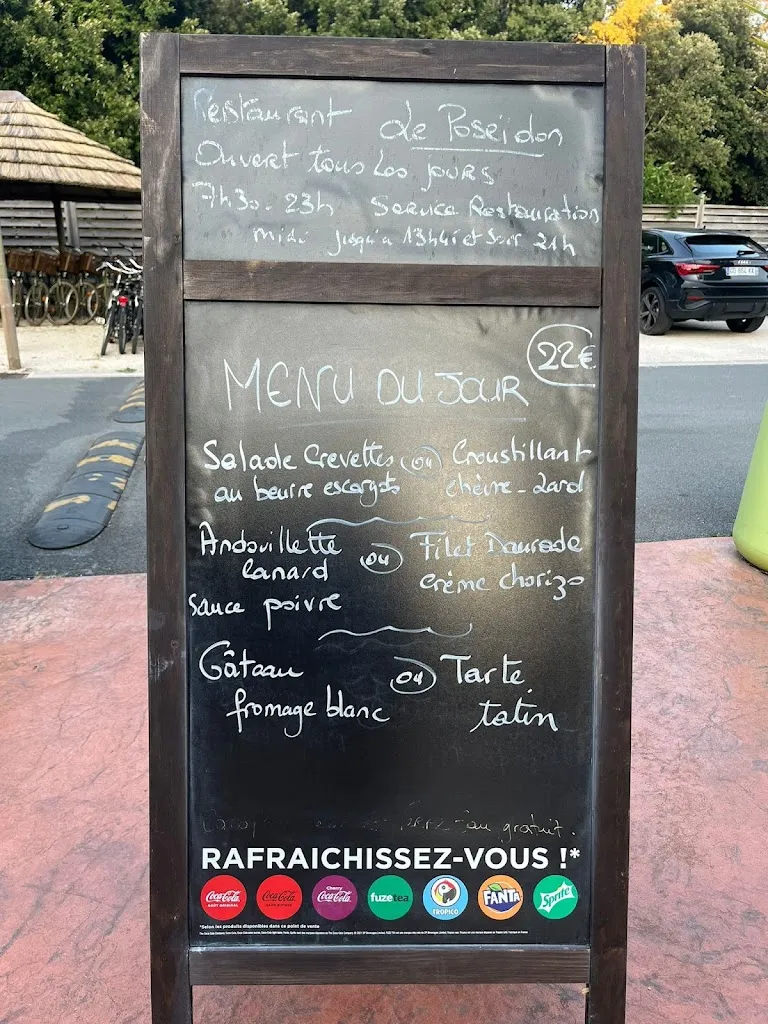 Restaurant de Poseïdon
Ouvert tous les jours
7h30 - 23h Service Restauration
midi jusqu'a 13h45 et Soir 21h
22€
MENU DU JOUR
Salade Crevettes ou Croustillant
au beurre escargots chèvre - lard
Andouillette ou Filet Daurade
canard crème chorizo
sauce poivre
Gâteau ou Tarte
fromage blanc tatin
eau gratuit.
RAFRAICHISSEZ-VOUS !*
Coca-Cola GOÛT ORIGINAL Coca-Cola Cherry Coca-Cola fuzetea TROPICO FANTA Sprite
*Selon les produits disponibles dans ce point de vente